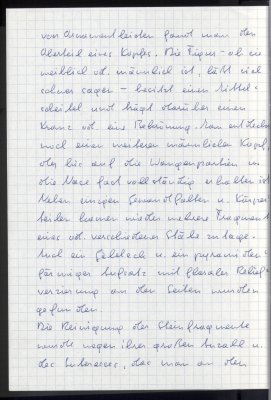 von Ornamentleisten fand man den
Oberteil eines Kopfes. Die Figur – ob sie
weiblich od. männlich ist, läßt sich
schwer sagen – besitzt einen Mittel-
scheitel und trägt darüber einen
Kranz od. eine Bekrönung. Man entdeckte
noch einen weiteren männlichen Kopf,
der bis auf die Wangenpartien u.
die Nase fast vollständig erhalten ist.
Neben einigen Gewandfalten u. Körper-
teilen kamen wieder mehrere Fragmente
eines od. verschiedener Stäbe zutage.
Auch ein u. ein pyramiden-
förmiger Aufsatz mit floraler Relief-
verzierung an den Seiten wurden
gefunden.
Die Reinigung der Steinfragmente
wurde wegen ihrer großen Anzahl u.
des Interesses, das man an den